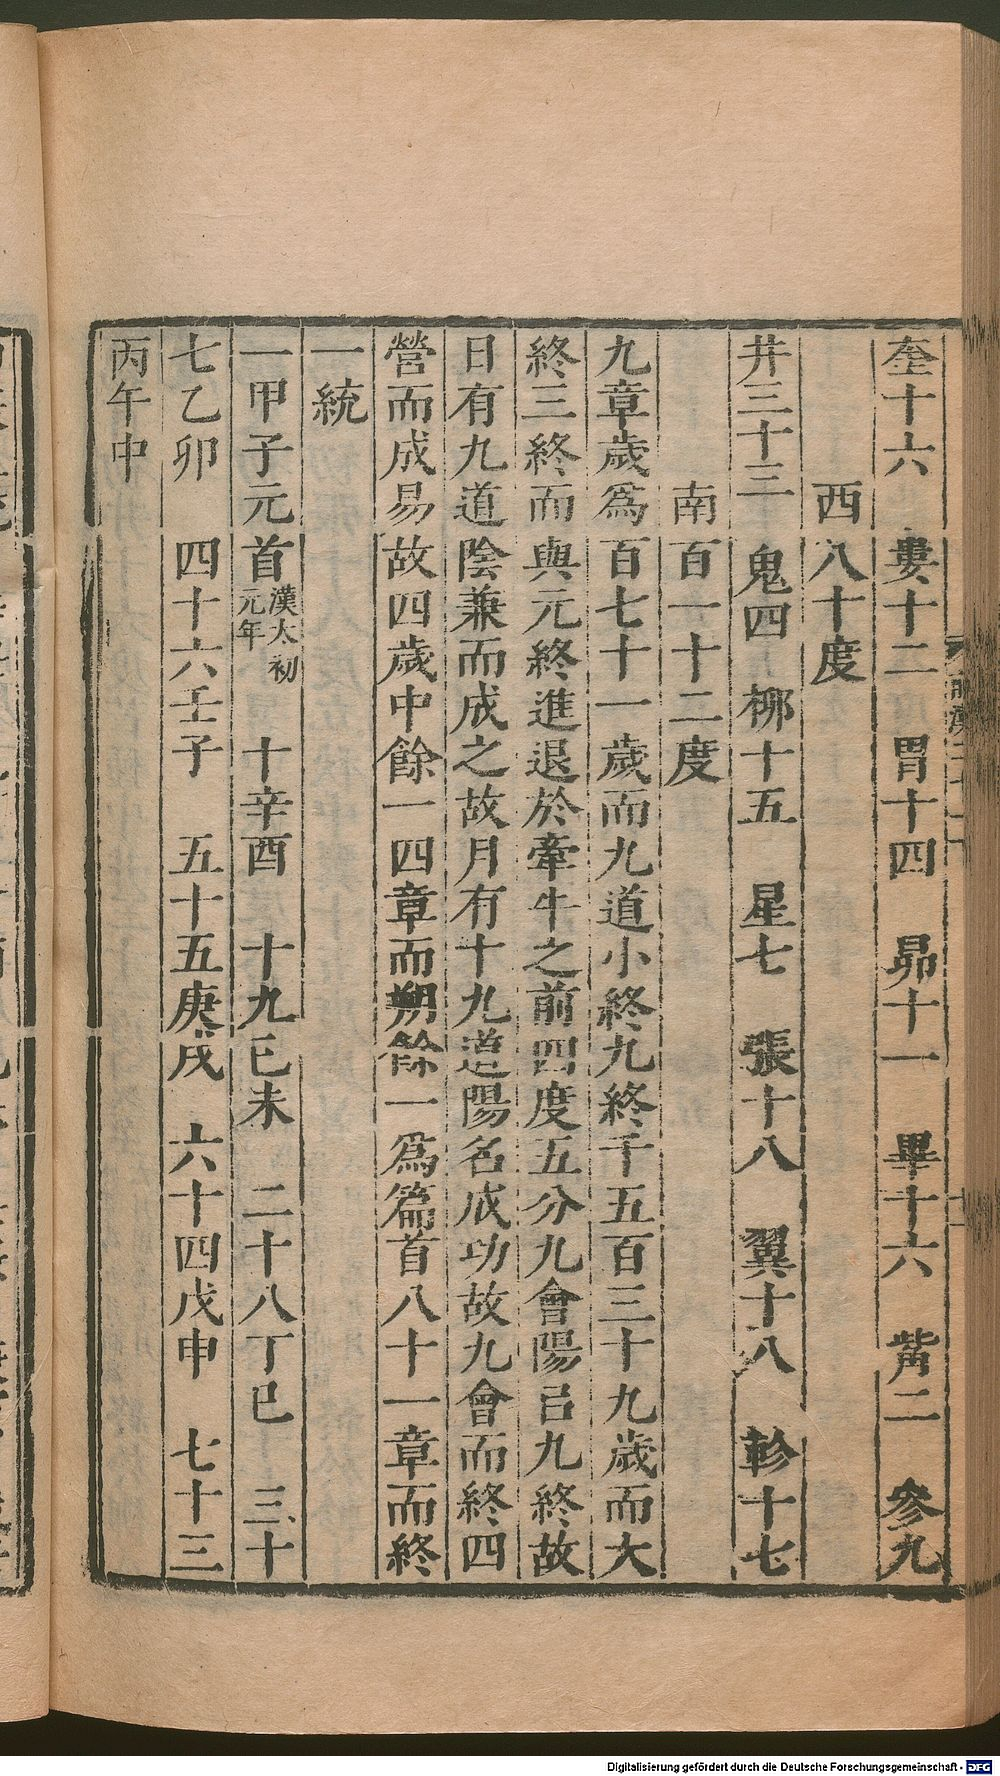 奎十六　婁十二　胃十四　昴十一　畢十六　觜二　參九
西八十度
井三十三　鬼四　柳十五　星七　張十八　翼十八　軫十七
南百一十二度
九章歲爲百七十一歲而九道小終九終千五百三十九歲而大
終三終而與元終進退於牽牛之前四度五分九會陽㠯九終故
日有九道陰兼而成之故月有十九道陽名成功故九會而終四
營而成易故四歲中餘一四章而朔餘一爲篇首八十一章而終
一統
一甲子元首漢太初元年　十辛酉　十九己未　二十八丁巳　三十
七乙卯　四十六壬子　五十五庚戌　六十四戊申　七十三
丙午中
Digitalisierung gefördert durch die Deutsche Forschungsgemeinschaft - DFG